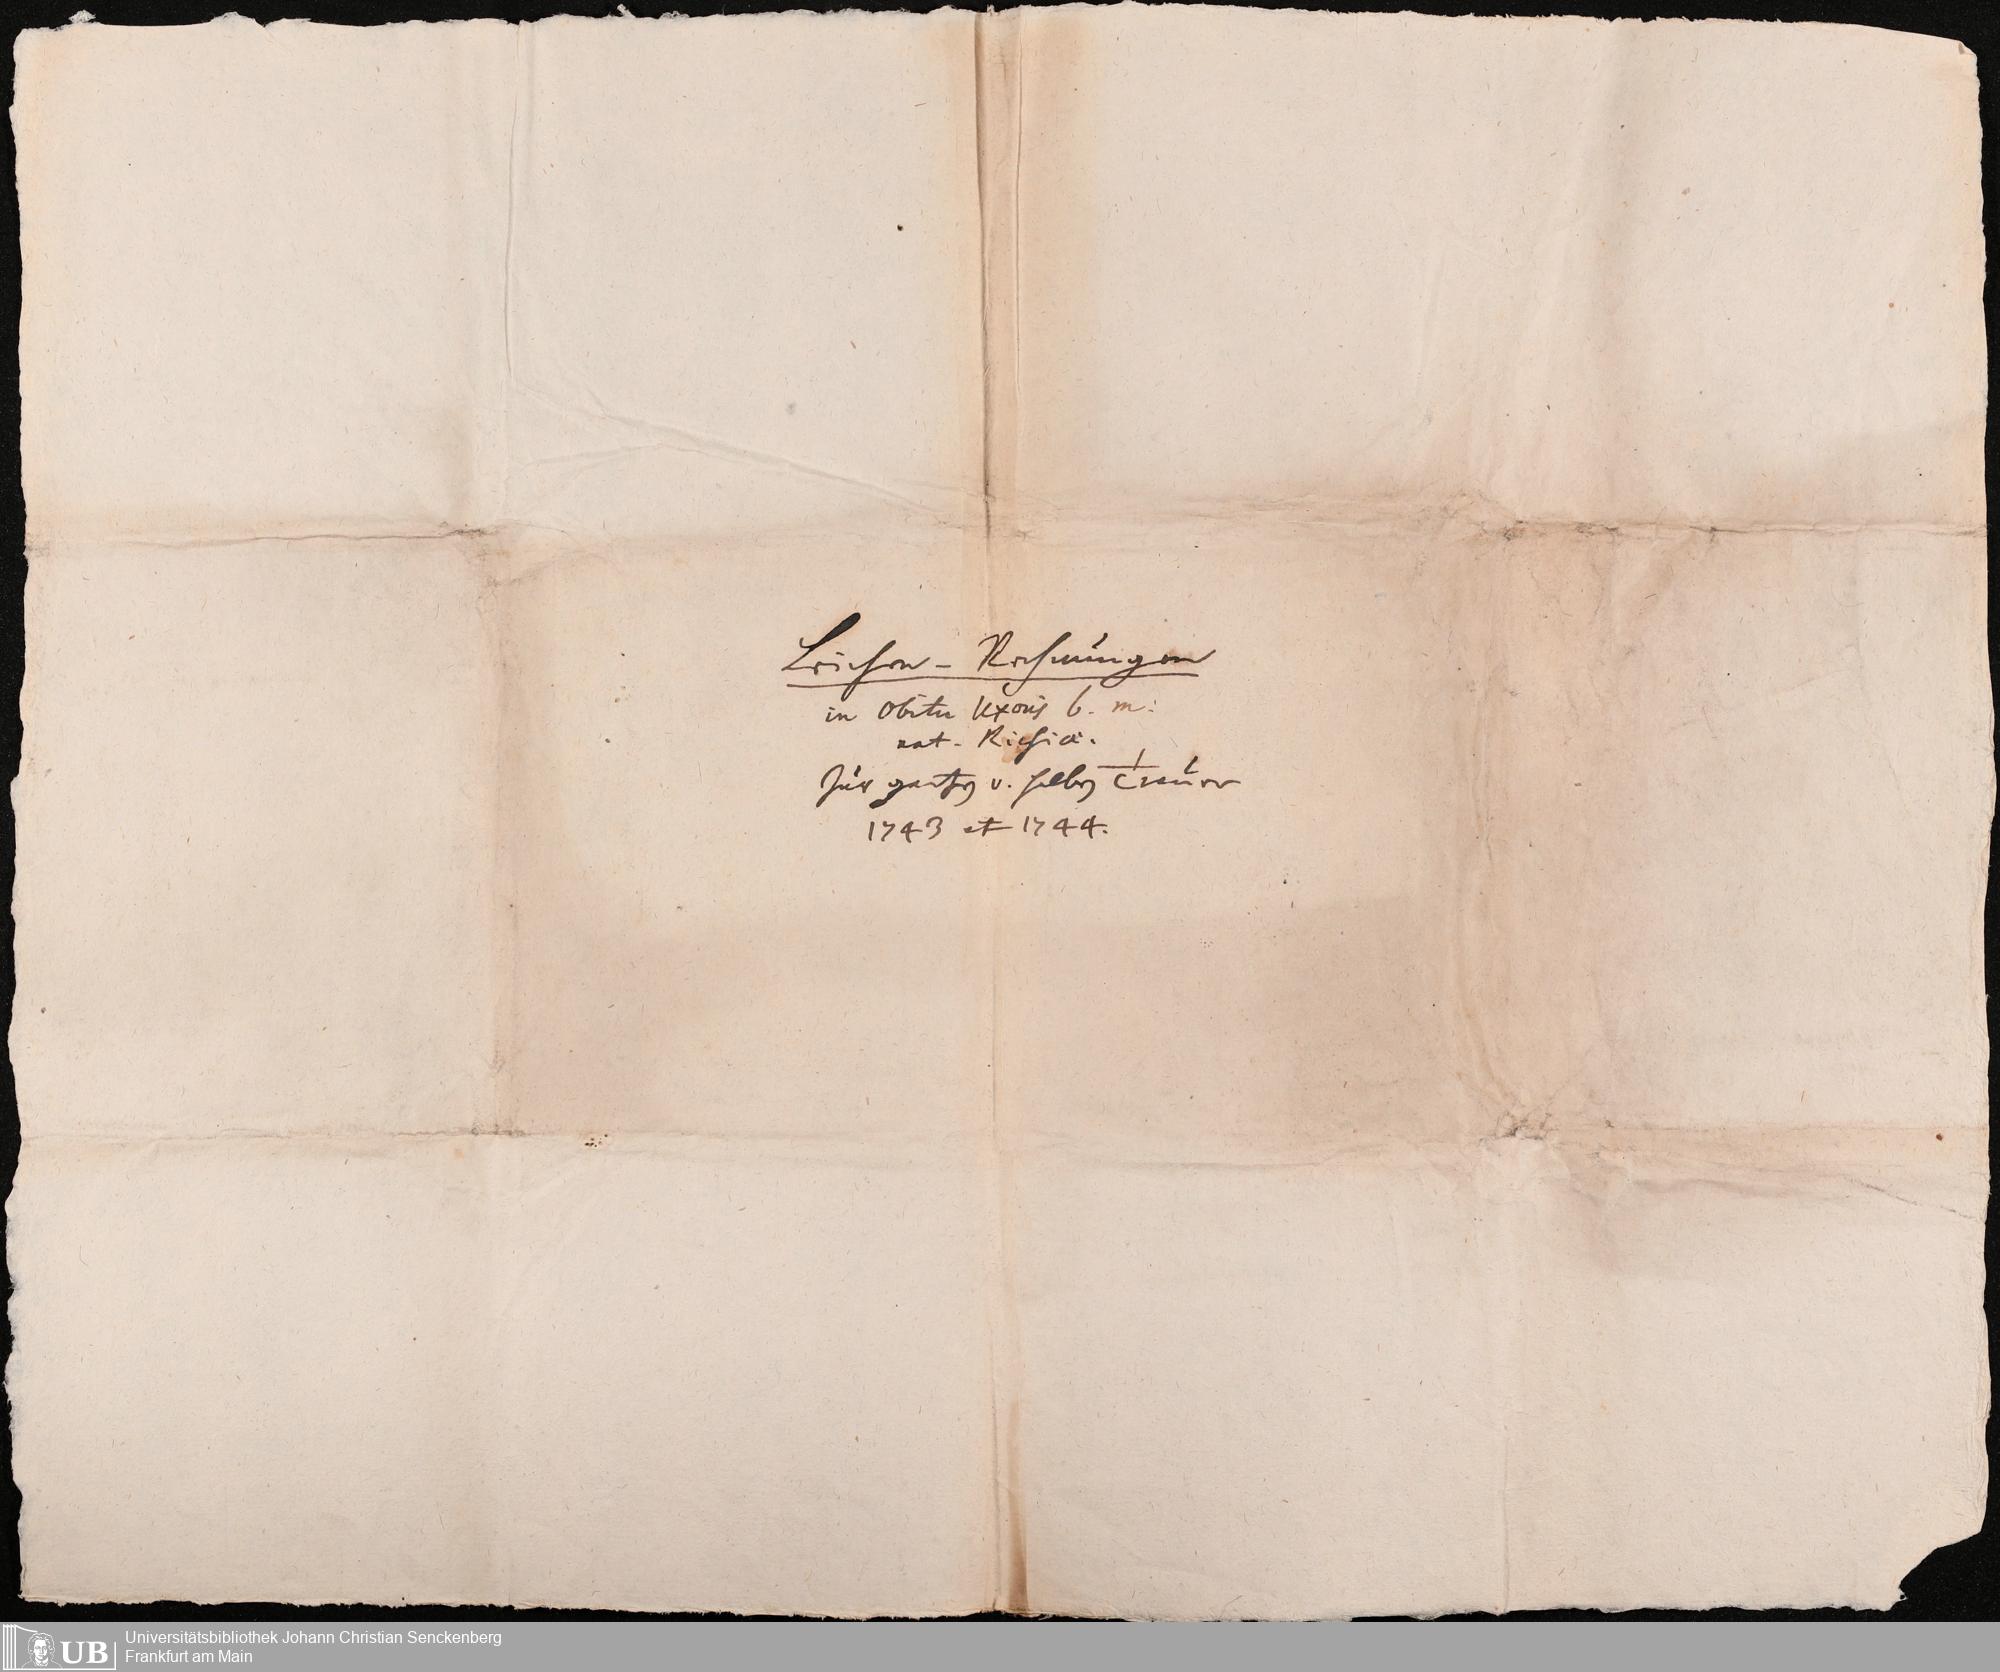 Leichen - Rechnungen
in Obitu Uxoris b. m:
nat. Richiä.
für gantze v. halbe Trauer
1743 et 1744.
UB
Universitätsbibliothek Johann Christian Senckenberg
Frankfurt am Main